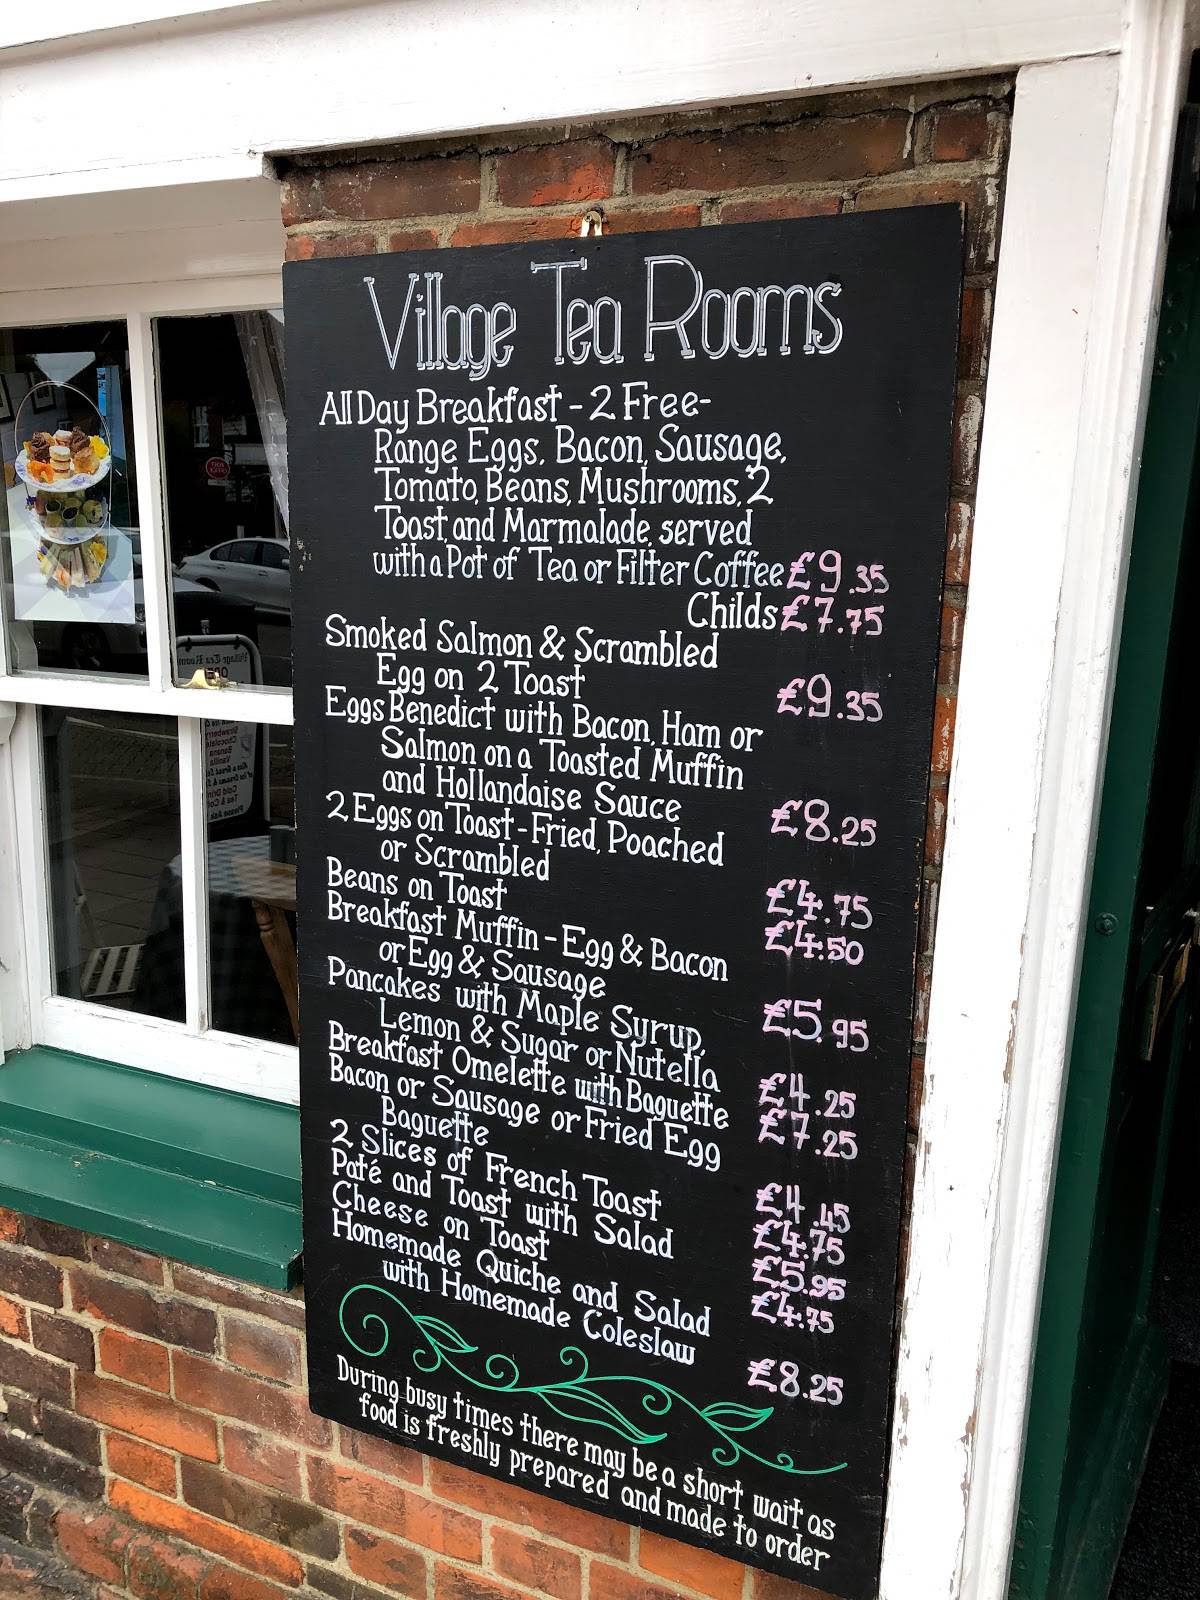 Village Tea Rooms
All Day Breakfast - 2 Free-
Range Eggs, Bacon, Sausage,
Tomato, Beans, Mushrooms, 2
Toast, and Marmalade, served
with a Pot of Tea or Filter Coffee £9.35
Childs £7.75
Smoked Salmon & Scrambled
Egg on 2 Toast £9.35
Eggs Benedict with Bacon, Ham or
Salmon on a Toasted Muffin
and Hollandaise Sauce £8.25
2 Eggs on Toast - Fried, Poached
or Scrambled £4.75
Beans on Toast £4.50
Breakfast Muffin - Egg & Bacon
or Egg & Sausage £5.95
Pancakes with Maple Syrup,
Lemon & Sugar or Nutella £4.25
Breakfast Omelette with Baguette £7.25
Bacon or Sausage or Fried Egg
Baguette £4.45
2 Slices of French Toast £4.75
Paté and Toast with Salad £5.95
Cheese on Toast £4.75
Homemade Quiche and Salad
with Homemade Coleslaw £8.25
During busy times there may be a short wait as
food is freshly prepared and made to order